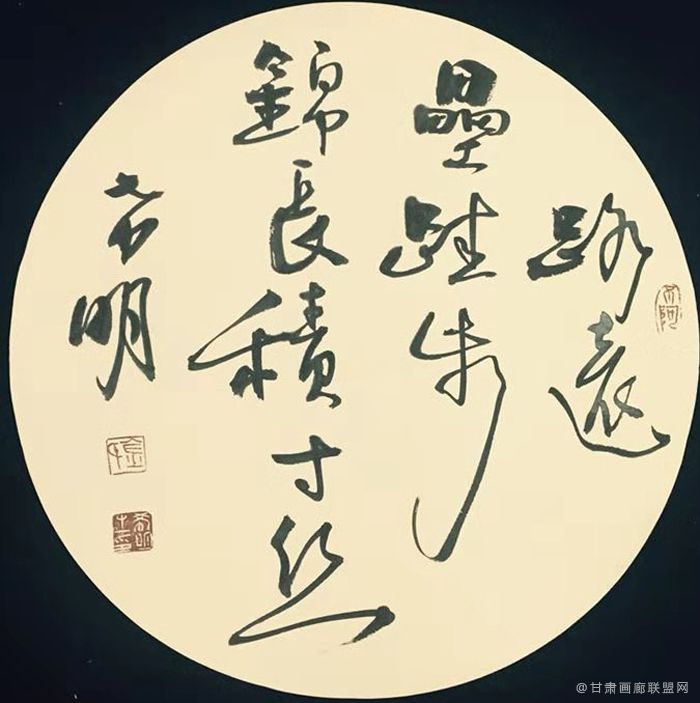 路遠
壘跬步
錦長積寸丝
明
@甘肃画廊联盟网